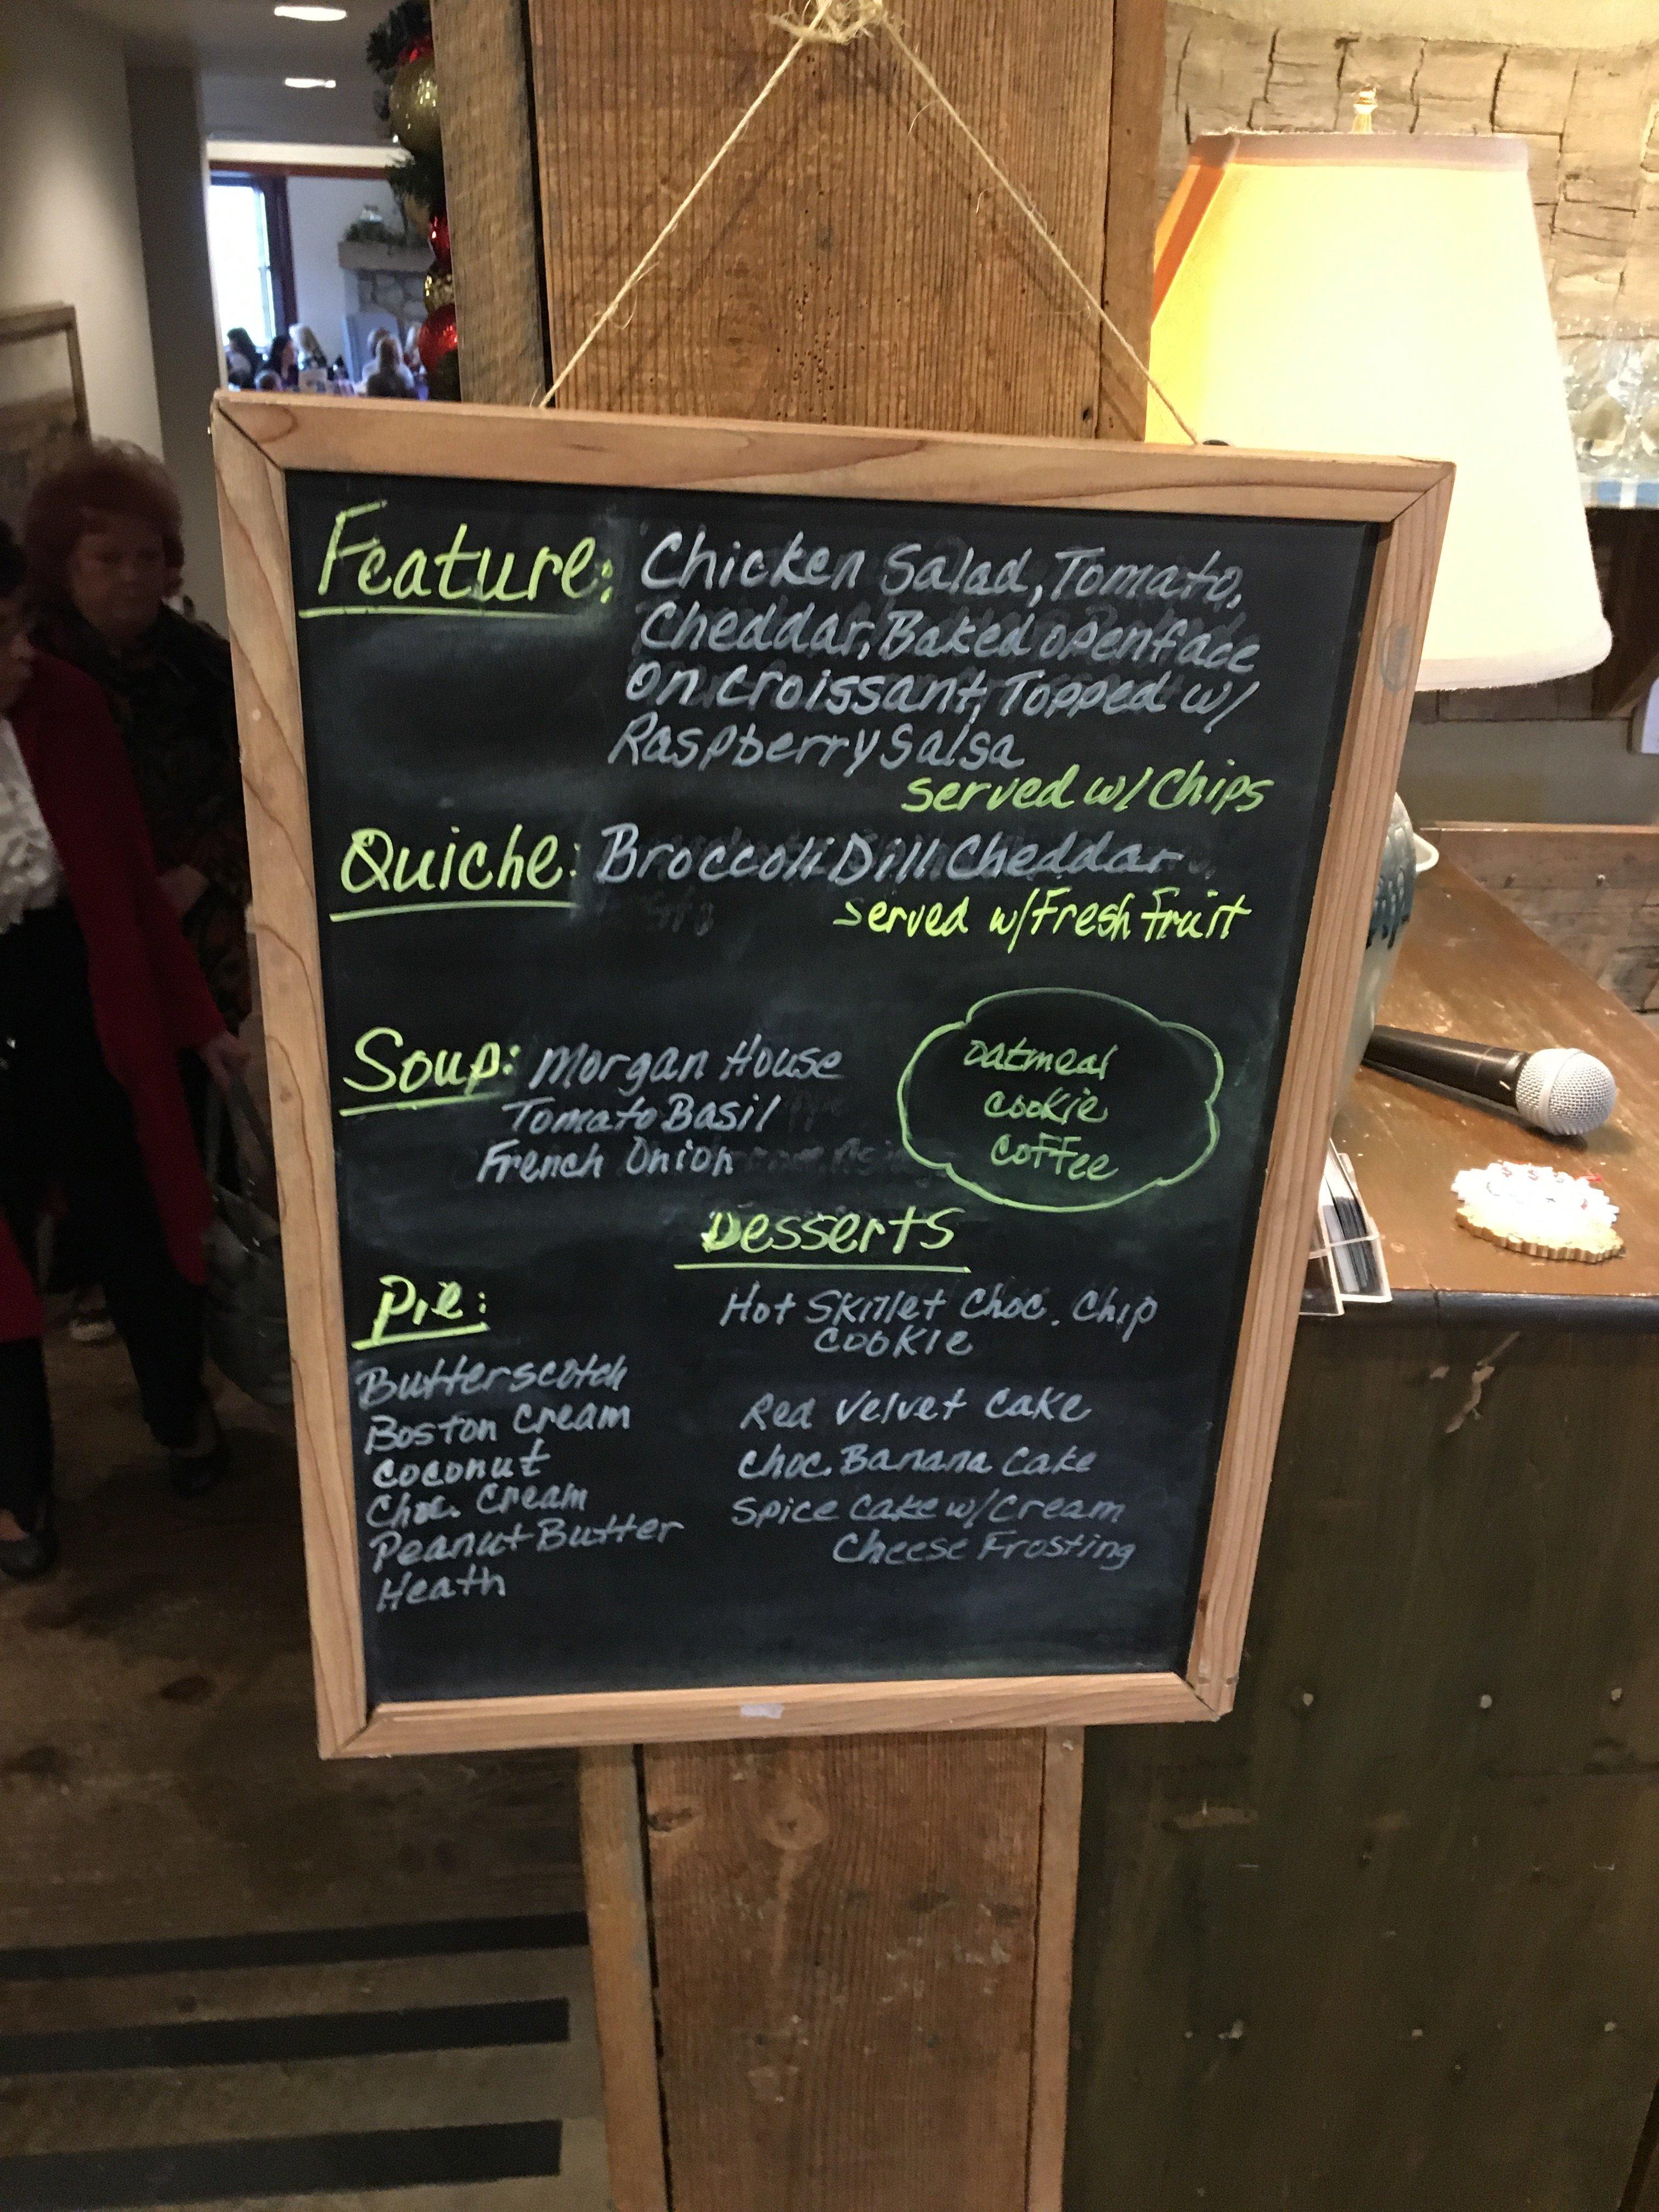 Feature: Chicken Salad, Tomato,
Cheddar, Baked openface
on croissant, Topped w/
Raspberry Salsa
served w/ Chips
Quiche: Broccoli Dill Cheddar
served w/ Fresh Fruit
Soup: Morgan House
Tomato Basil
French Onion
oatmeal
cookie
coffee
Desserts
Pie:
Butterscotch
Boston Cream
coconut
Choc. Cream
Peanut Butter
Heath
Hot Skillet Choc. Chip
cookie
Red Velvet Cake
Choc. Banana Cake
Spice Cake w/ Cream
Cheese Frosting